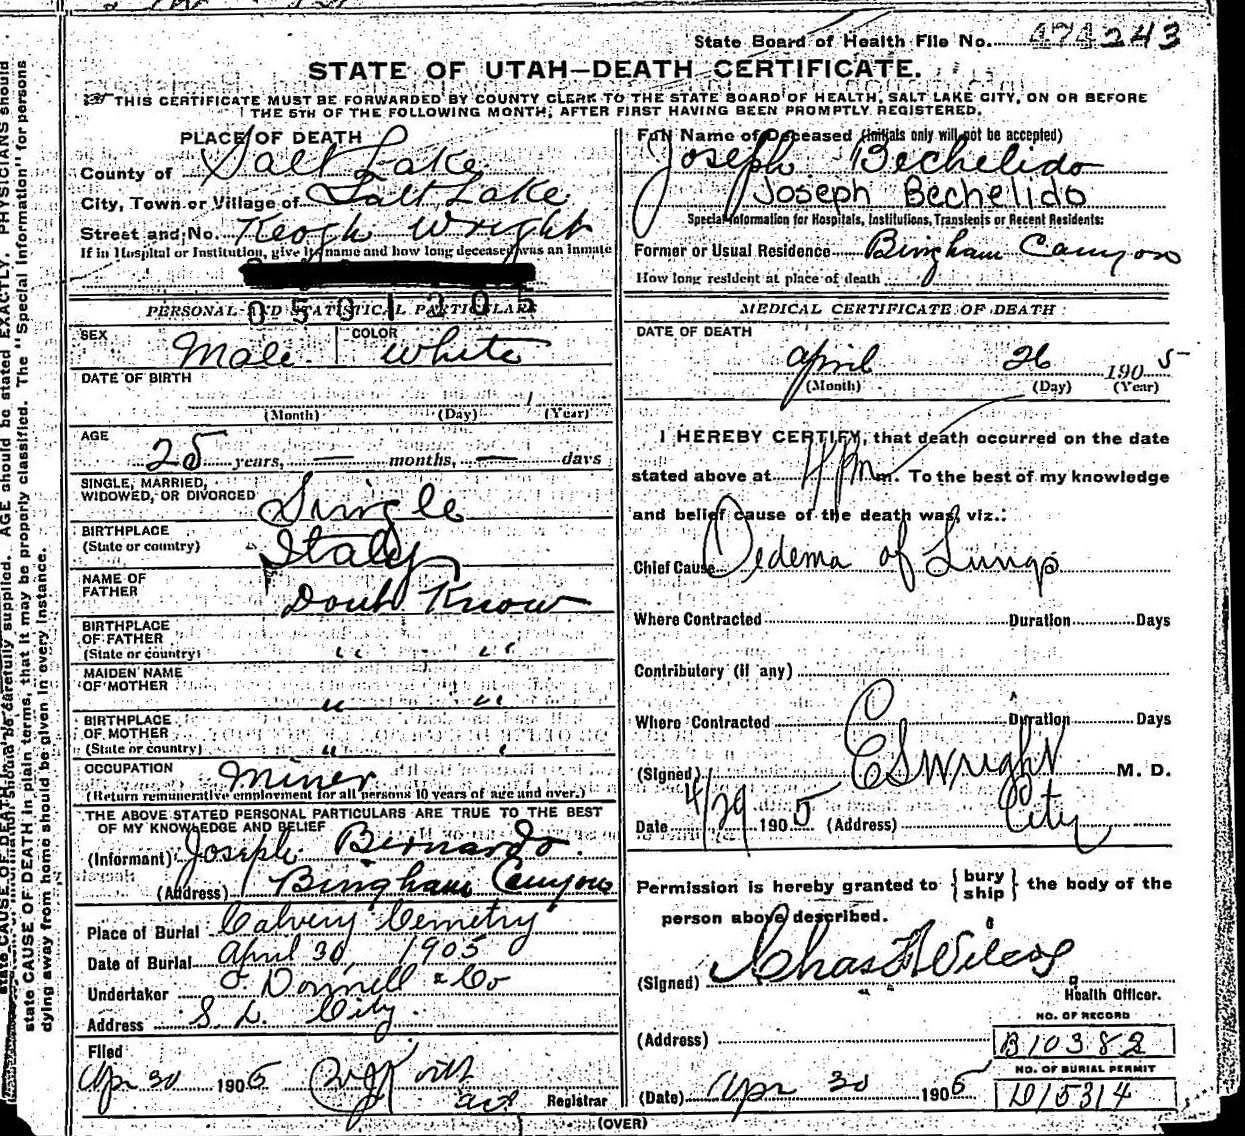 State Board of Health File No. 474243
STATE OF UTAH—DEATH CERTIFICATE.
THIS CERTIFICATE MUST BE FORWARDED BY COUNTY CLERK TO THE STATE BOARD OF HEALTH, SALT LAKE CITY, ON OR BEFORE
THE 5TH OF THE FOLLOWING MONTH, AFTER FIRST HAVING BEEN PROMPTLY REGISTERED.
PLACE OF DEATH
County of Salt Lake
City, Town or Village of Salt Lake
Street and No. Keogh Wright
If in Hospital or Institution, give its name and how long deceased was an inmate
0501205
PERSONAL AND STATISTICAL PARTICULARS
SEX Male COLOR White
DATE OF BIRTH
(Month) (Day) 1 (Year)
AGE
25 years, — months, — days
SINGLE, MARRIED,
WIDOWED, OR DIVORCED Single
BIRTHPLACE
(State or country) Italy
NAME OF
FATHER Dont Know
BIRTHPLACE
OF FATHER
(State or country) " "
MAIDEN NAME
OF MOTHER " "
BIRTHPLACE
OF MOTHER
(State or country) " "
OCCUPATION Miner
(Return remunerative employment for all persons 10 years of age and over.)
THE ABOVE STATED PERSONAL PARTICULARS ARE TRUE TO THE BEST
OF MY KNOWLEDGE AND BELIEF
(Informant) Joseph Bernardo.
(Address) Bingham Canyon
Place of Burial Calvery Cemetry
Date of Burial April 30, 1905
Undertaker O Donnell & Co
Address S. L. City.
Filed
Apr 30 1905
Registrar
Full Name of Deceased (Initials only will not be accepted)
Joseph Bechelido
Joseph Bechelido
Special Information for Hospitals, Institutions, Transients or Recent Residents:
Former or Usual Residence Bingham Canyon
How long resident at place of death
MEDICAL CERTIFICATE OF DEATH
DATE OF DEATH
April 26 1905
(Month) (Day) (Year)
I HEREBY CERTIFY, that death occurred on the date
stated above at 4 Pm m. To the best of my knowledge
and belief cause of the death was, viz.:
Chief Cause Oedema of Lungs
Where Contracted Duration Days
Contributory (if any)
Where Contracted Duration Days
(Signed) E S Wright M. D.
Date 4/29 1905 (Address) City
Permission is hereby granted to {bury ship} the body of the
person above described.
(Signed) Chas F Wilcox
Health Officer.
(Address)
NO. OF RECORD
B10382
NO. OF BURIAL PERMIT
D15314
(Date) Apr 30 1905
(OVER)
state CAUSE OF DEATH in plain terms, that it may be properly classified. The "Special Information" for persons
dying away from home should be given in every instance.